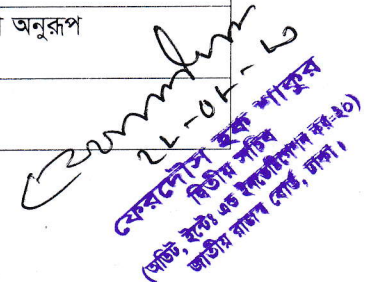 অনুরূপ
ফেরদৌস হক শাকুর
দ্বিতীয় সচিব
(অডিট, ইন্টেঃ এন্ড ইনভেস্টিগেশন কর-২০)
জাতীয় রাজস্ব বোর্ড, ঢাকা।